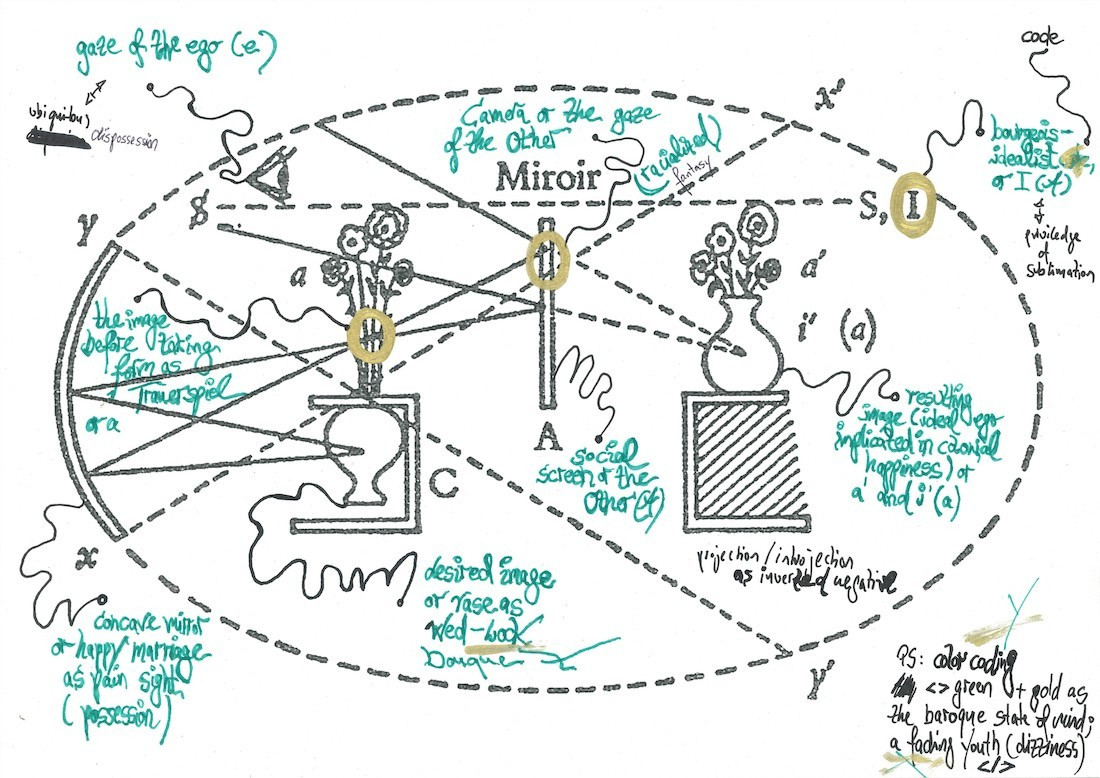 gaze of the ego (e)
ubiquitous
dispossession
Camera or the gaze
of the Other
(racialized)
fantasy
code
x'
bourgeois-
idealist
or I (A)
priviledge
of
sublimation
Miroir
$
S, I
y
a
a'
i' (a)
the image
before taking
form as
Trauerspiel
or a
A
C
x
social
screen or the
Other (A)
resulting
image (ideal) ego
implicated in colonial
happiness) or
a' and i'(a)
projection/introjection
as inverted negative
desired image
or vase as
Wed-lock
concave mirror
or happy marriage
as pain sight
(possession)
y'
PS: color coding
<> green + gold as
the baroque state of mind;
a fading youth (dizziness)
</>